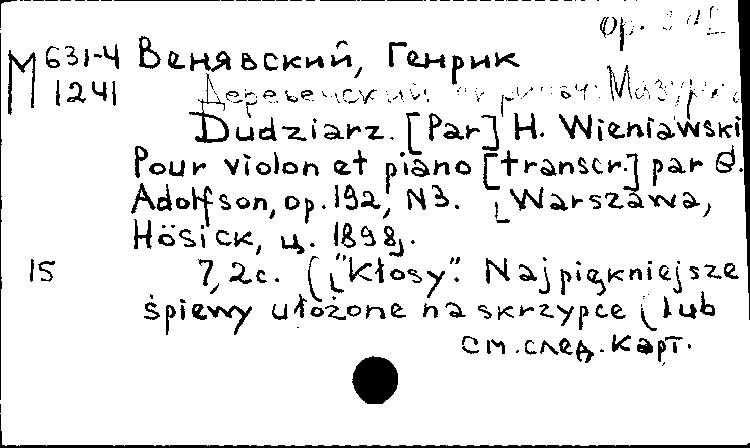 op.
М 631-4 Венявский, Генрик
1241 Деревенский Мазурка
Dudziarz. [Par] H. Wieniawski
Pour violon et piano [transcr.] par
Adolfson, op. 192, N3. [Warszawa,
Hösick, ц. 1898].
15 7, 2с. ( ["Kłosy". Najpiękniejsze
śpiewy ułożone na skrzypce (lub
см. след. карт.